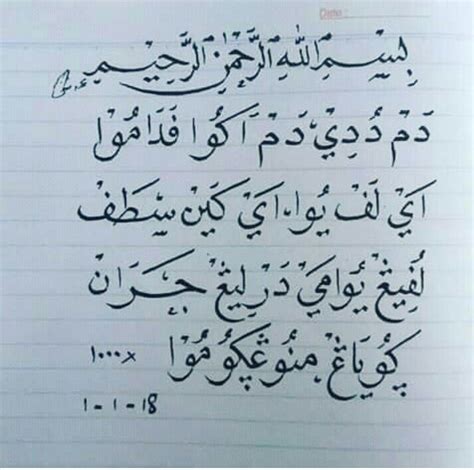 Date :
بِسْمِ اللّٰهِ الرَّحْمٰنِ الرَّحِيْمِ
دَمْ دُدِيْ، دَمْ اَكُوْا فَدَامُوْا
اَيْ لَفْ يُوْا، اَيْ كَيْنْ سْطَفْ
لُفِيڠْ يُوْامِيْ دَرْلِيڠْ جَرَانْ
كُوْيَاڠْ مِنُوْڠْكُوْمُوْا ١٠٠٠x
1 - 1 - 18